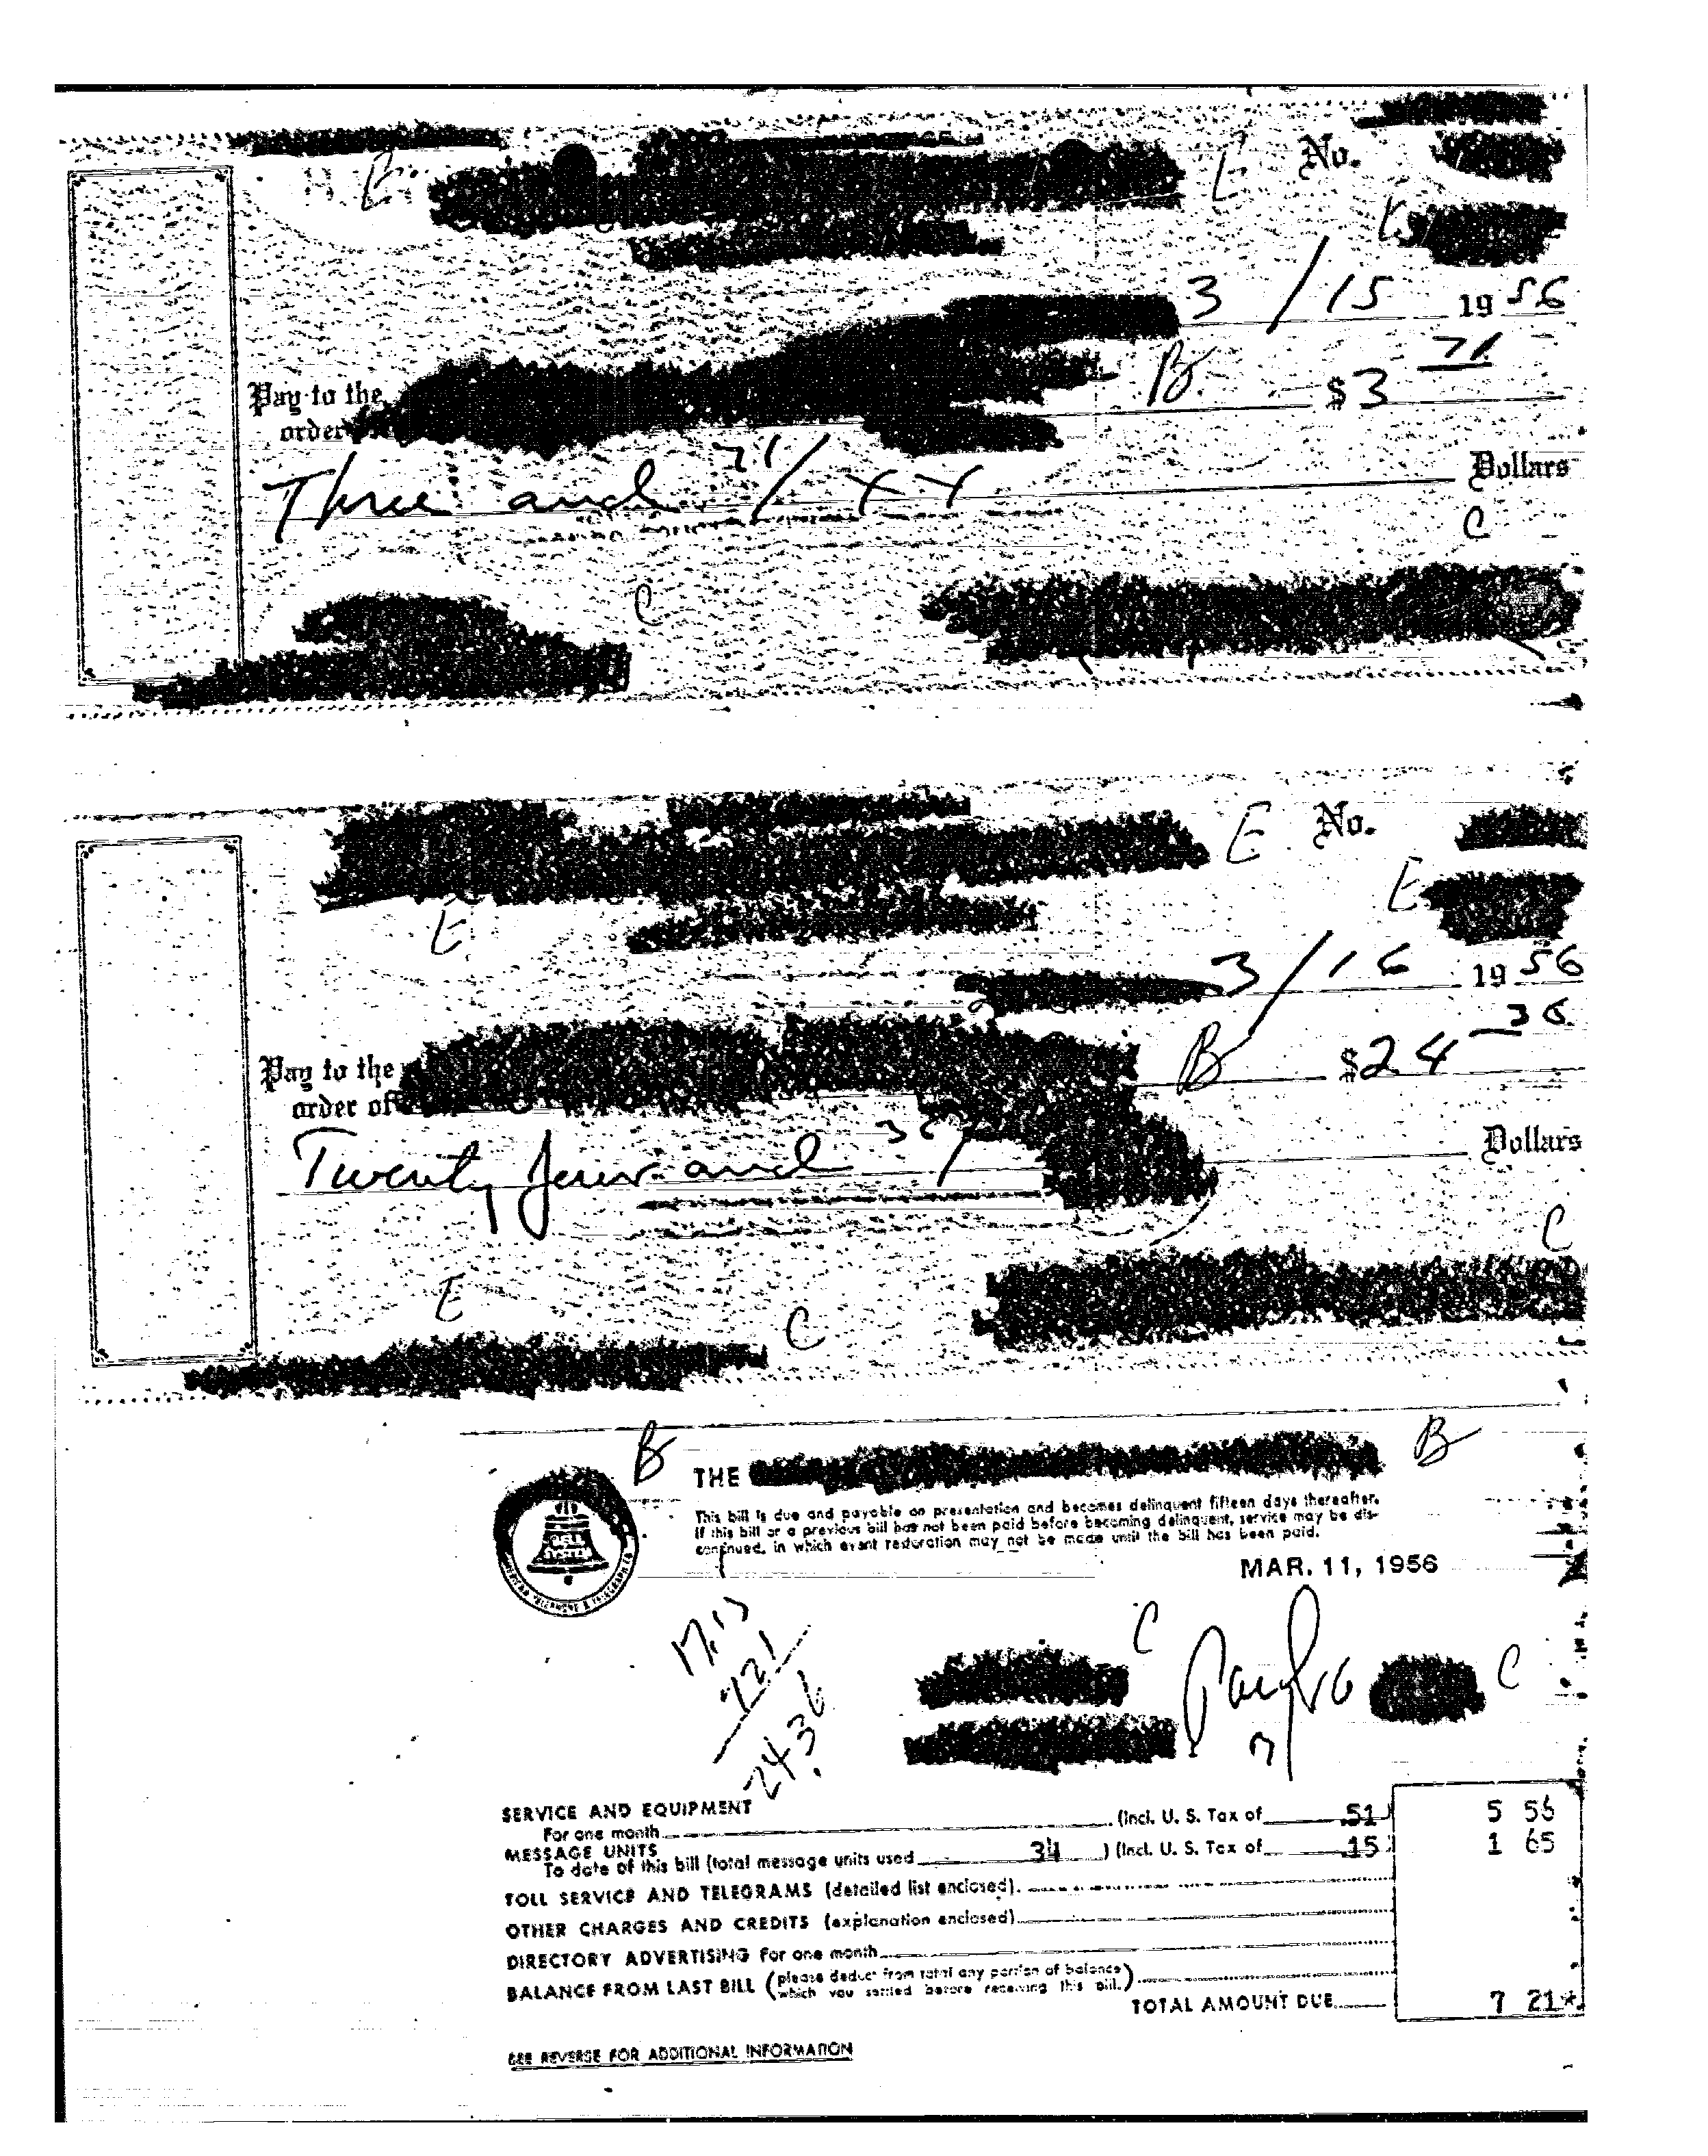 E
E No.
E
3/15 1956
Pay to the B $3 71
order
Three and 71/XX Dollars
C
C
E No.
E
E
3/16 1956
Pay to the B $24 36
order of
Twenty four and 36/ Dollars
C
E
C
B THE B
This bill is due and payable on presentation and becomes delinquent fifteen days thereafter.
If this bill or a previous bill has not been paid before becoming delinquent, service may be dis-
continued, in which event restoration may not be made until the bill has been paid.
BELL
SYSTEM
AMERICAN TELEPHONE & TELEGRAPH CO
MAR. 11, 1956
17.15
7.21
24.36
C
C
SERVICE AND EQUIPMENT
For one month (Incl. U. S. Tax of .51) 5 56
MESSAGE UNITS
To date of this bill (total message units used 34 ) (Incl. U. S. Tax of .15) 1 65
TOLL SERVICE AND TELEGRAMS (detailed list enclosed).
OTHER CHARGES AND CREDITS (explanation enclosed)
DIRECTORY ADVERTISING For one month
BALANCE FROM LAST BILL (please deduct from total any portion of balance
which you settled before receiving this bill.)
TOTAL AMOUNT DUE 7 21*
SEE REVERSE FOR ADDITIONAL INFORMATION